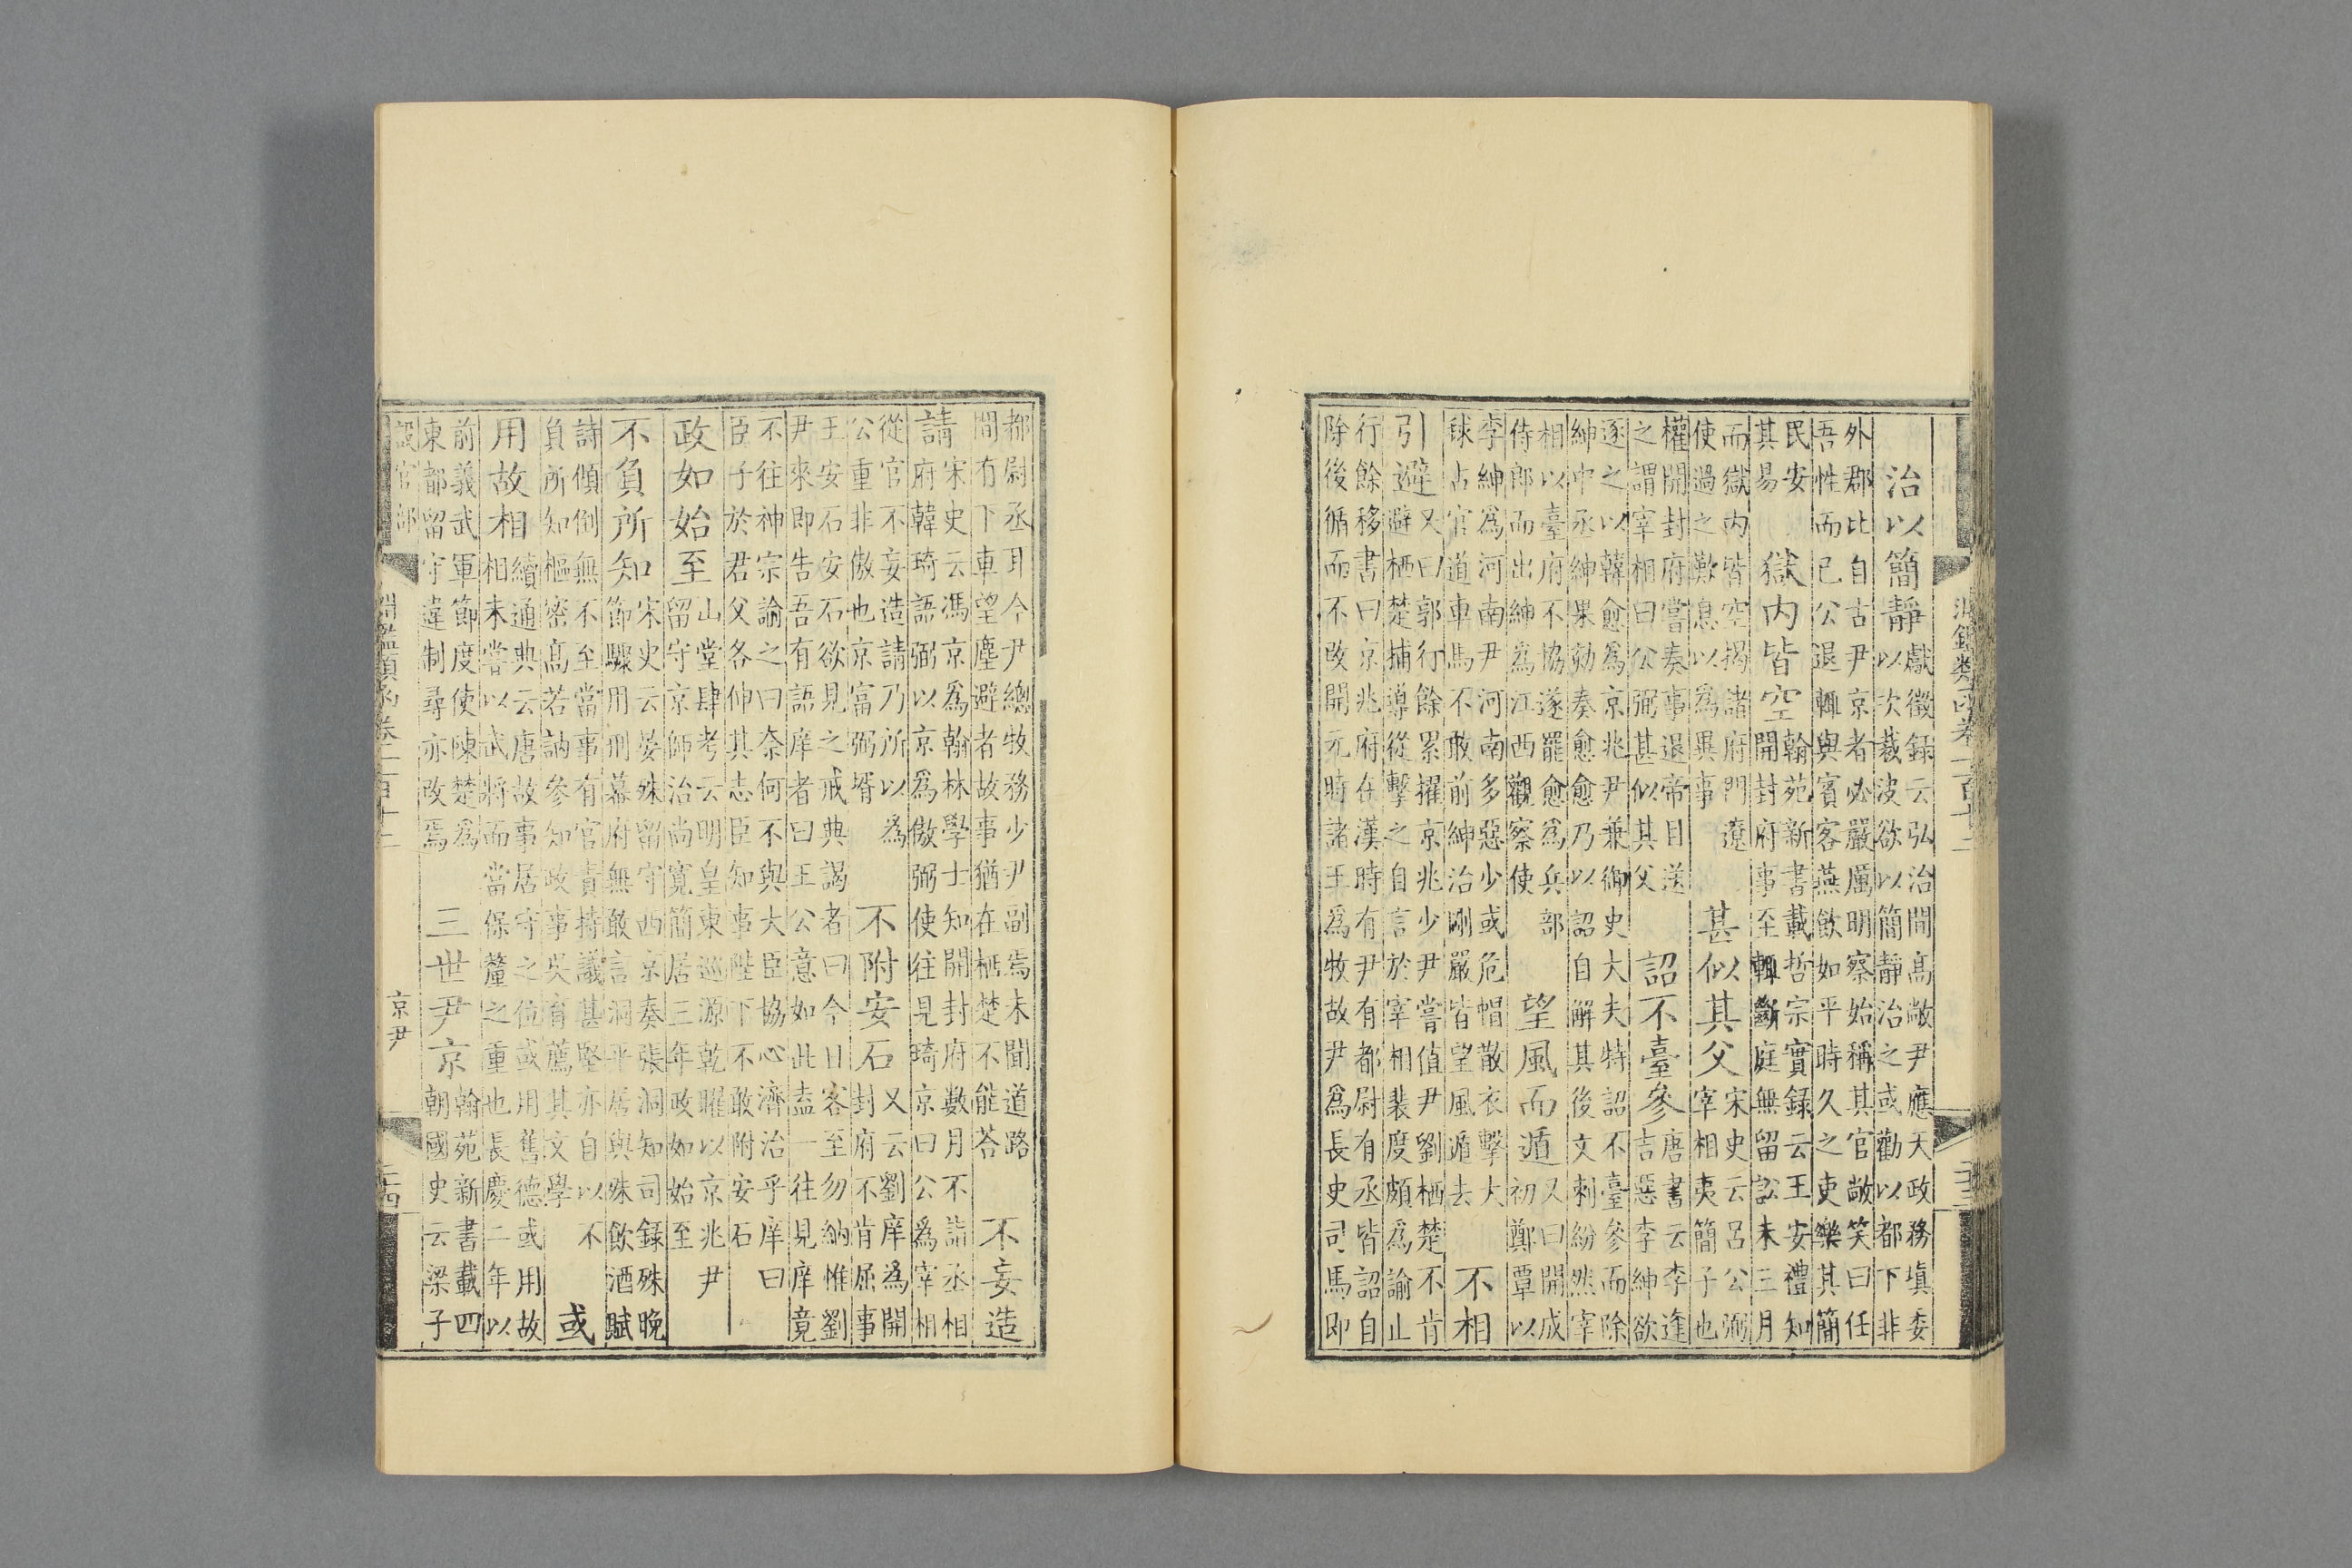 淵鑑類函卷一百十二
二十三
治以簡靜
獻徵録云弘治間髙敞尹應天政務填委
以次裁波欲以簡靜治之或勸以都下非
外郡比自古尹京者必嚴厲明察始稱其官敞笑曰任
吾性而已公退輒與賓客燕飲如平時久之吏樂其簡
民安
其易
獄内皆空
翰苑新書載哲宗實録云王安禮知
開封府事至輒斷庭無留訟未三月
而獄内皆空揭諸府門遼
使過之歎息以為異事
甚似其父
宋史云吕公弼
宰相夷簡子也
權開封府嘗奏事退帝目送
之謂宰相曰公弼甚似其父
詔不臺參
唐書云李逢
吉惡李紳欲
逐之以韓愈為京兆尹兼御史大夫特詔不臺參而除
紳中丞紳果劾奏愈愈乃以詔自解其後文刺紛然宰
相以臺府不協遂罷愈為兵部
侍郎而出紳為江西觀察使
望風而遁
又曰開成
初鄭覃以
李紳為河南尹河南多惡少或危帽散衣擊大
毬占官道車馬不敢前紳治剛嚴皆望風遁去
不相
引避
又曰郭行餘累擢京兆少尹嘗值尹劉栖楚不肯
避栖楚捕導從擊之自言於宰相裴度頗為諭止
行餘移書曰京兆府在漢時有尹有都尉有丞皆詔自
除後循而不改開元時諸王為牧故尹為長史司馬即
都尉丞耳今尹總牧務少尹副焉未聞道路
間有下車望塵避者故事猶在栖楚不能荅
不妄造
請
宋史云馮京為翰林學士知開封府數月不詣丞相
府韓琦語弼以京為傲弼使往見琦京曰公為宰相
從官不妄造請乃所以為
公重非傲也京富弼壻
不附安石
又云劉庠為開
封府不肯屈事
王安石安石欲見之戒典謁者曰今日客至勿納惟劉
尹來即告吾有語庠者曰王公意如此盍一往見庠竟
不往神宗諭之曰奈何不與大臣協心濟治乎庠曰
臣子於君父各伸其志臣知事陛下不敢附安石
政如始至
山堂肆考云明皇東巡源乾曜以京兆尹
留守京師治尚寛簡居三年政如始至
不負所知
宋史云晏殊留守西京奏張洞知司録殊晚
節驟用刑幕府無敢言洞平居與殊飲酒賦
詩傾倒無不至當事有官責持議甚堅亦自以不
負所知樞密髙若訥參知政事吳育薦其文學
或
用故相
續通典云唐故事居守之位或用舊德或用故
相未嘗以武將而當保釐之重也長慶二年以
前義武軍節度使陳楚為
東都留守違制尋亦改焉
三世尹京
翰苑新書載四
朝國史云梁子
設官部
淵鑑類函卷一百十二
京尹
二十四